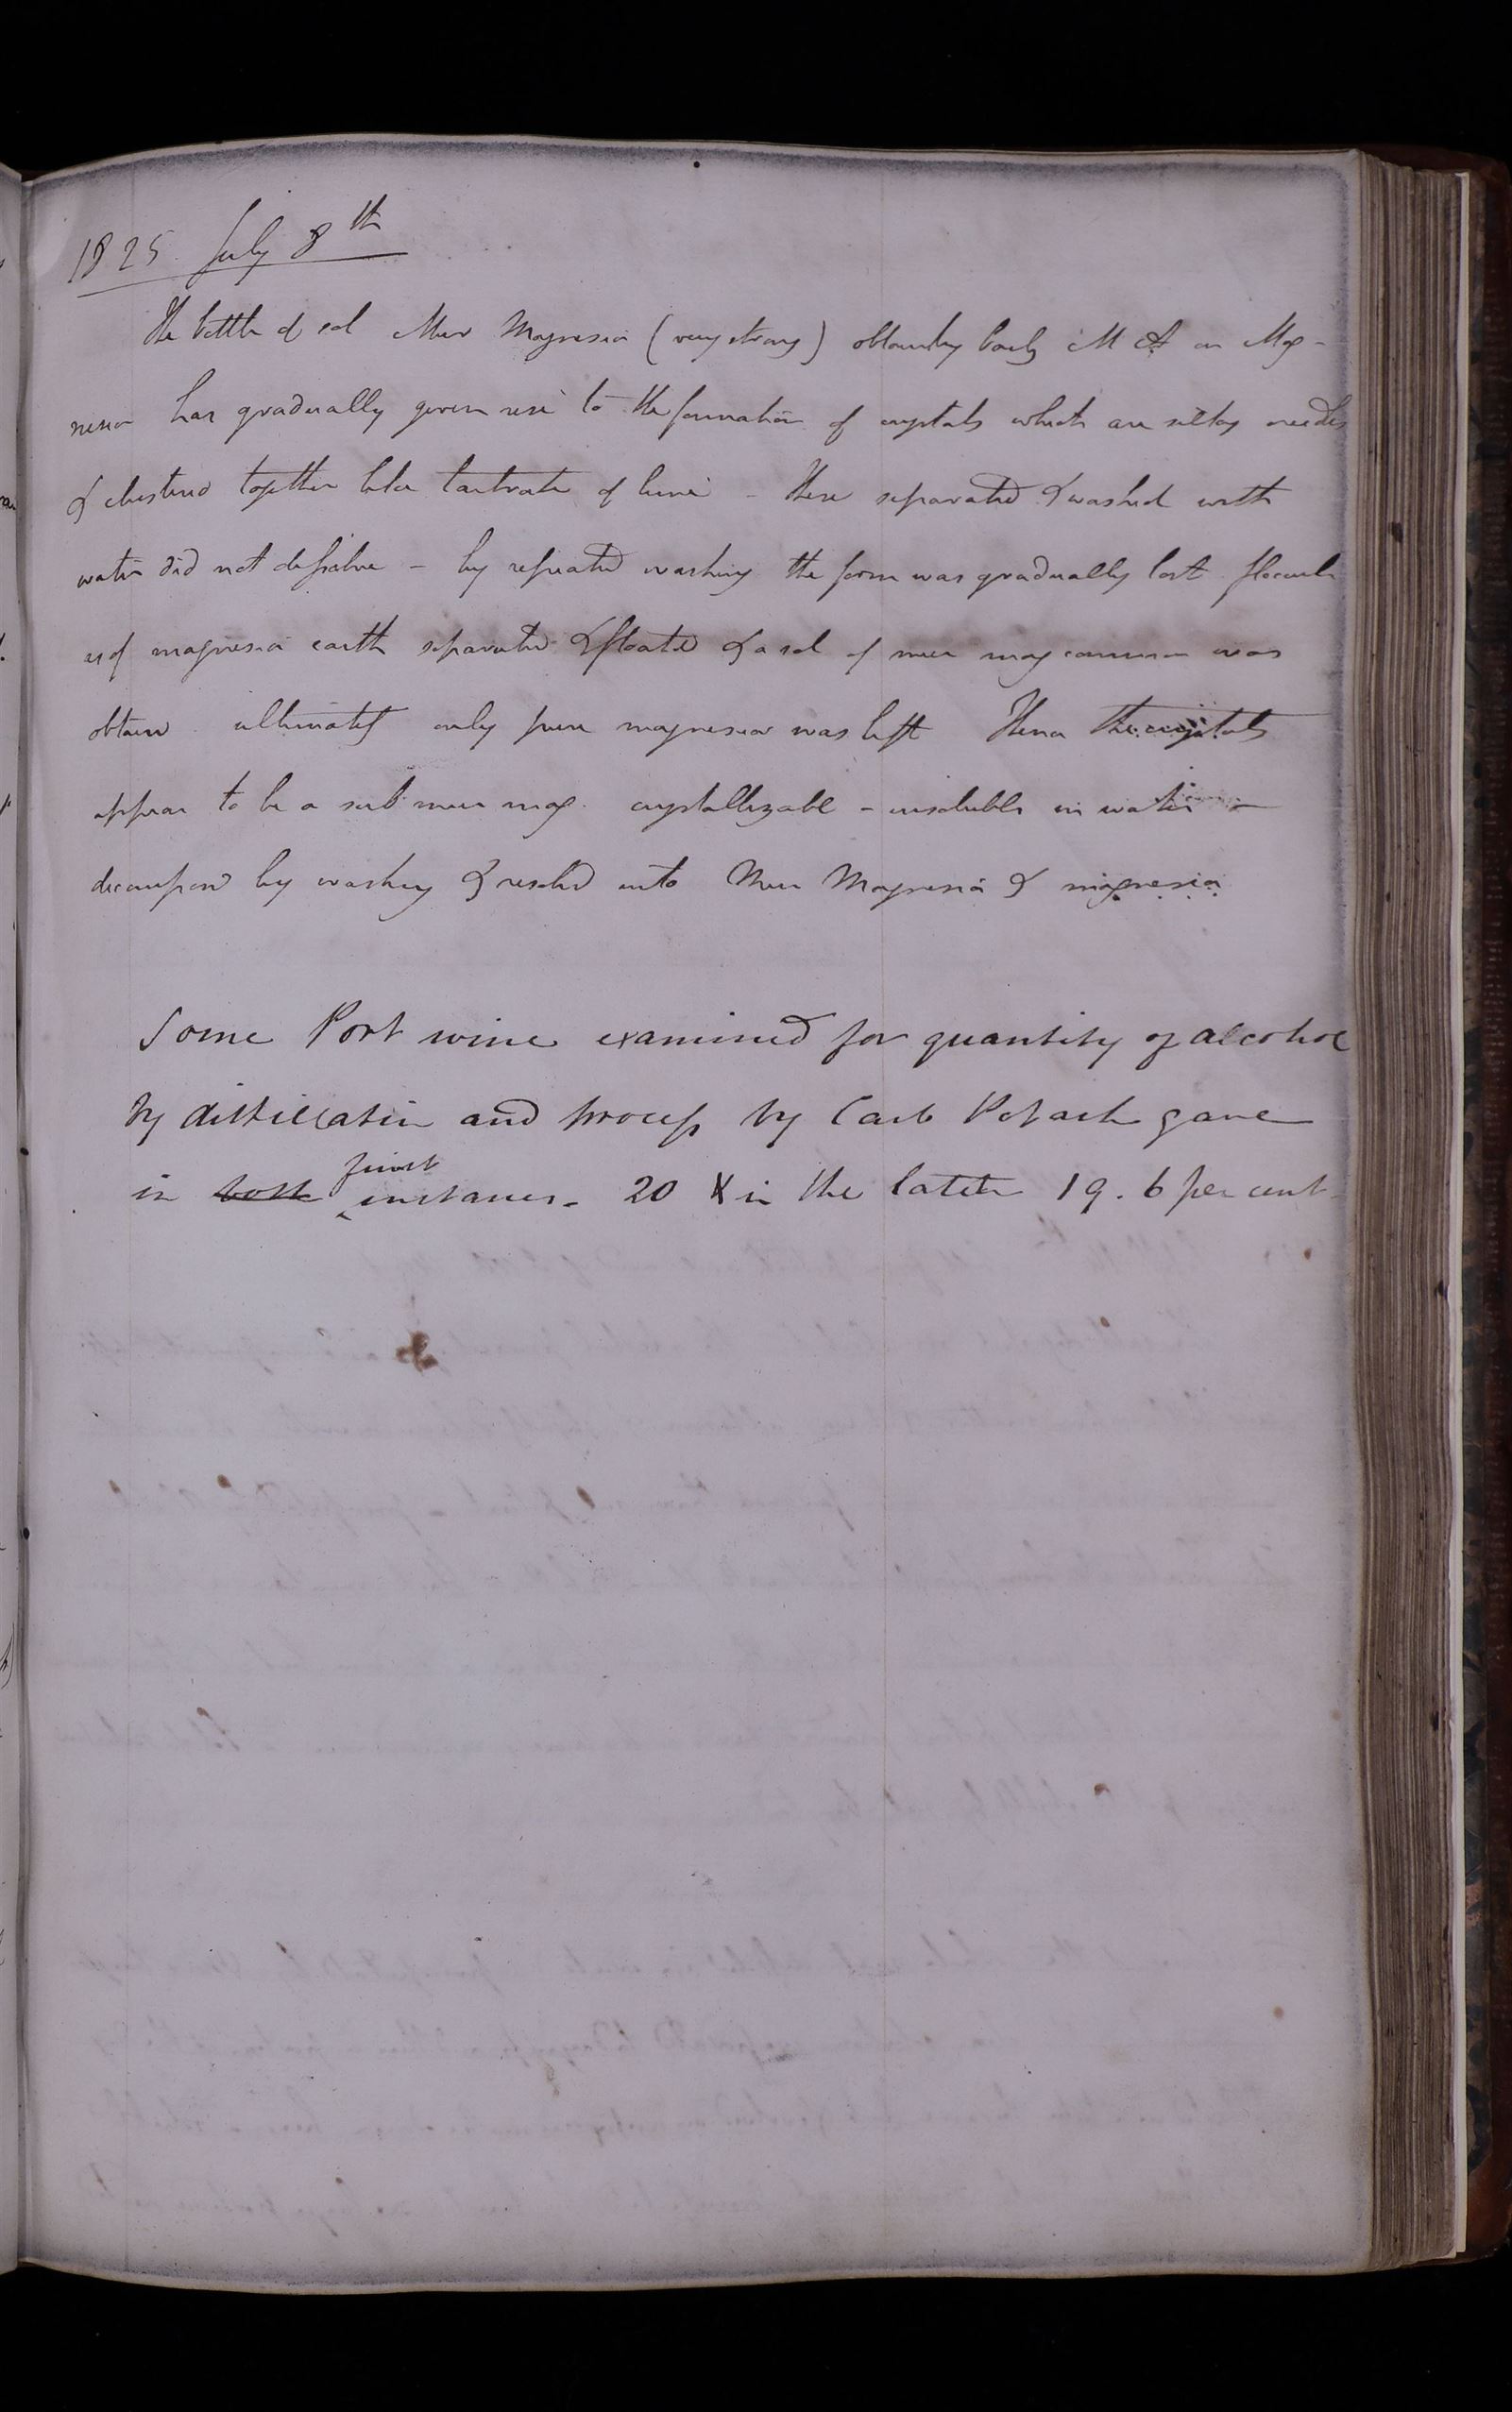 1825 July 8th
The bottle of sol Mur Magnesia (very strong) obtained by M A on Mag-
nesia has gradually given rise to the formation of crystals which are silky needles
& clustered together like tartrate of lime - these separated & washed with
water did not dissolve - by repeated washing the form was gradually lost floccul
es of magnesia earth separated & floated & a sol of mur mag common was
obtained ultimately only pure magnesia was left Hence the crystals
appear to be a sub mur mag. crystallizable - insoluble in water -
decomposed by washing & resolved into Mur Magnesia & magnesia
Some Port wine examined for quantity of alcohol
by distillation and process by Carb Potash gave
in both first instance - 20 & in the latter 19.6 per cent